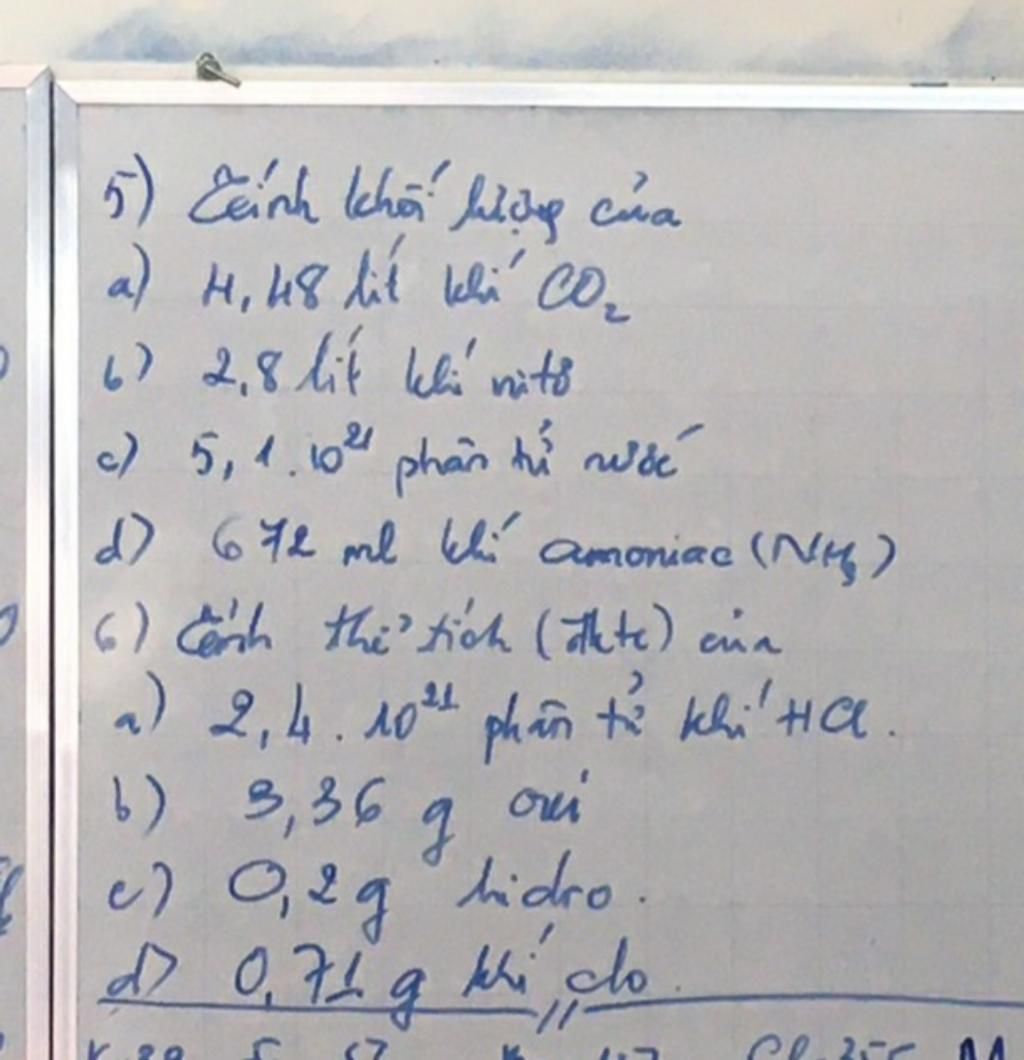 5) Tính khối lượng của
a) 4,48 lít khí CO₂
b) 2,8 lít khí nitơ
c) 5,1.10²¹ phân tử nước
d) 672 ml khí amoniac (NH₃)
6) Tính thể tích (đktc) của
a) 2,4.10²¹ phân tử khí HCl.
b) 3,36 g oxi
c) 0,2g hidro.
d) 0,71 g khí clo.